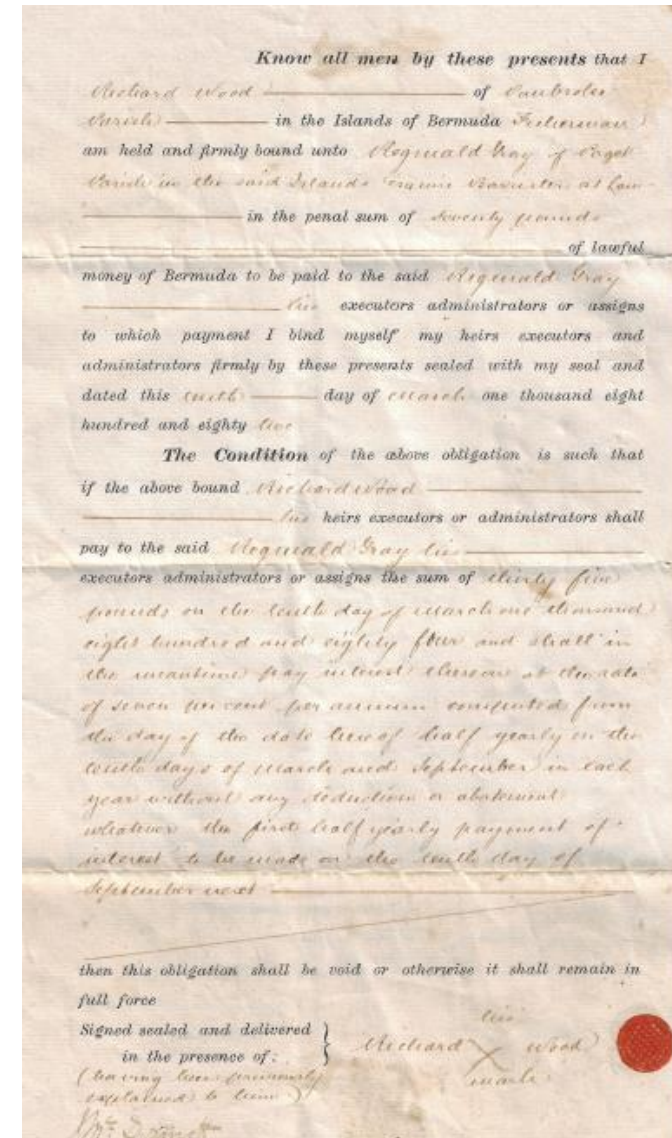 Know all men by these presents that I
Richard Wood of Pembroke
Parish in the Islands of Bermuda Fisherman
am held and firmly bound unto Reginald Gray of Paget
Parish in the said Islands Barrister at Law
in the penal sum of seventy pounds
of lawful
money of Bermuda to be paid to the said Reginald Gray
his executors administrators or assigns
to which payment I bind myself my heirs executors and
administrators firmly by these presents sealed with my seal and
dated this tenth day of March one thousand eight
hundred and eighty
The Condition of the above obligation is such that
if the above bound Richard Wood
his heirs executors or administrators shall
pay to the said Reginald Gray his
executors administrators or assigns the sum of thirty five
pounds on the tenth day of March one thousand
eight hundred and eighty four and shall in
the meantime pay interest thereon at the rate
of seven per cent per annum computed from
the day of the date hereof half yearly on the
tenth days of March and September in each
year without any deduction or abatement
whatever the first half yearly payment of
interest to be made on the tenth day of
September next
then this obligation shall be void or otherwise it shall remain in
full force
Signed sealed and delivered
in the presence of:
(having been previously
explained to him)
his
Richard X Wood
mark